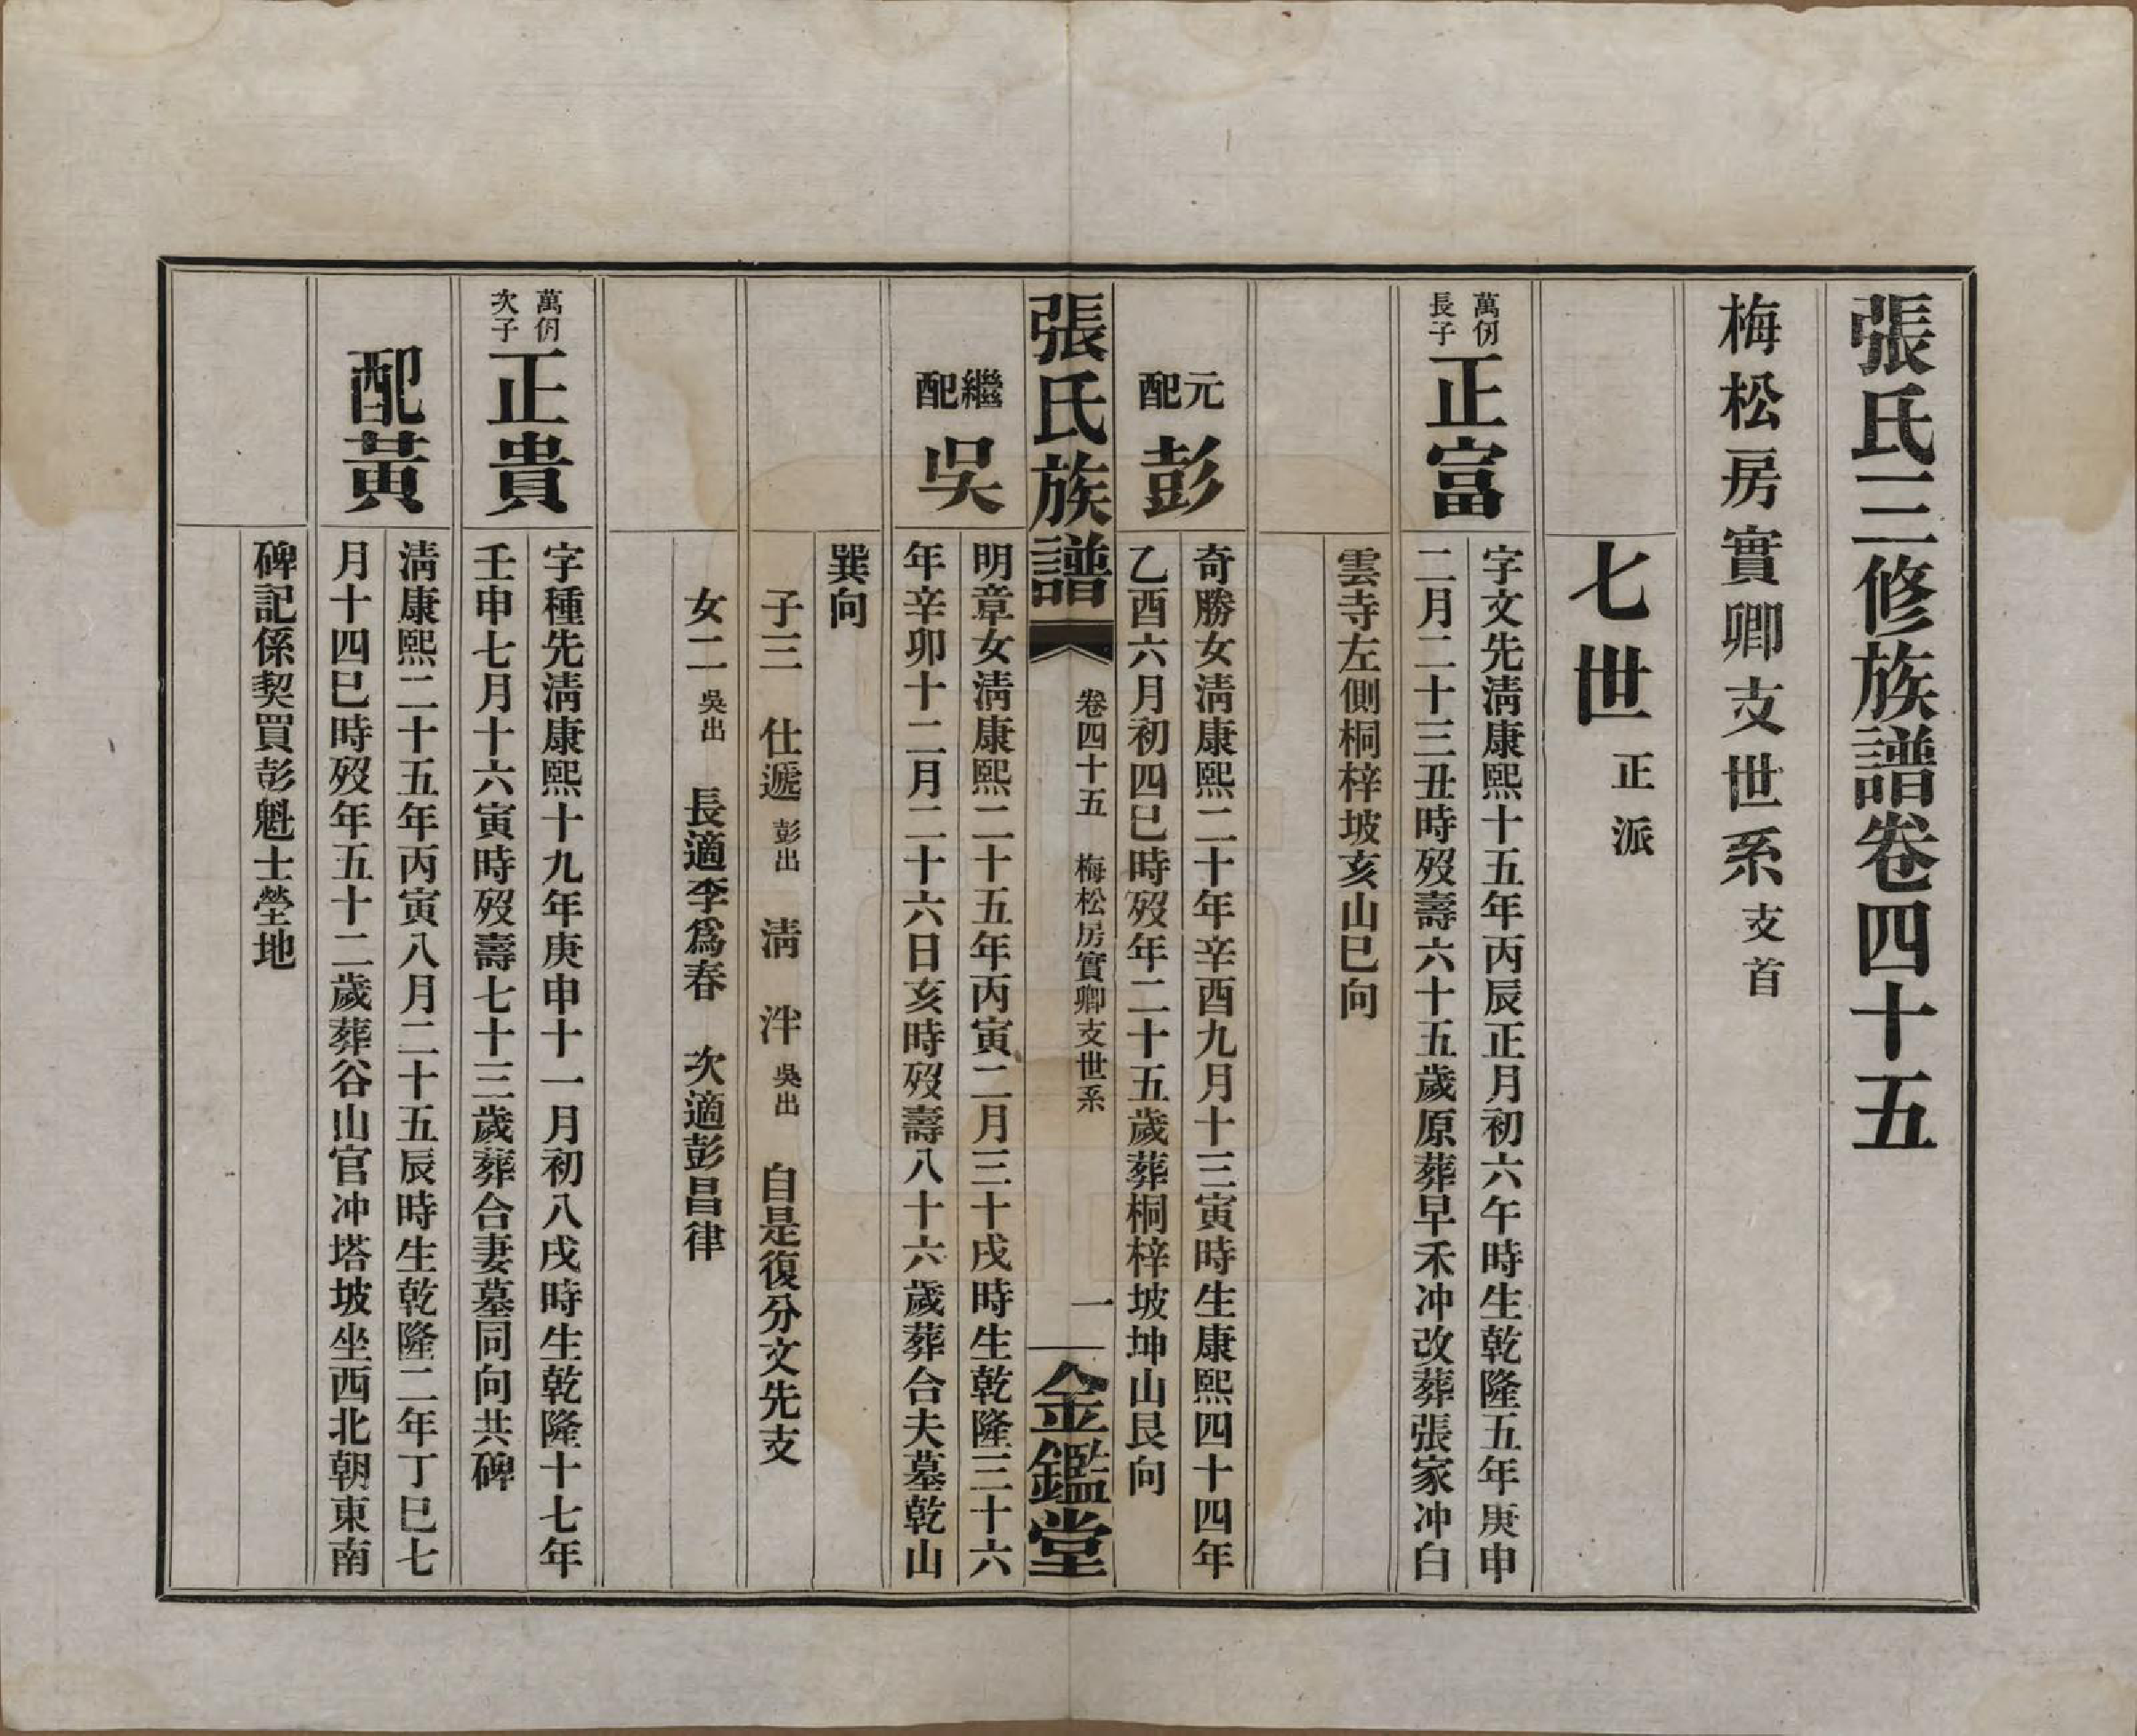 張氏三修族譜卷四十五
梅松房實卿支世系支首
七世正派
萬仞
長子
正富
字文先淸康熙十五年丙辰正月初六午時生乾隆五年庚申
二月二十三丑時歿壽六十五歲原葬早禾冲改葬張家冲白
雲寺左側桐梓坡亥山巳向
元配
彭
奇勝女淸康熙二十年辛酉九月十三寅時生康熙四十四年
乙酉六月初四巳時歿年二十五歲葬桐梓坡坤山艮向
張氏族譜
卷四十五 梅松房實卿支世系
一
金鑑堂
繼配
吳
明章女淸康熙二十五年丙寅二月三十戌時生乾隆三十六
年辛卯十二月二十六日亥時歿壽八十六歲葬合夫墓乾山
巽向
子三 仕遞彭出 淸 泮吳出 自是復分文先支
女二吳出 長適李爲春 次適彭昌律
萬仞
次子
正貴
字種先淸康熙十九年庚申十一月初八戌時生乾隆十七年
壬申七月十六寅時歿壽七十三歲葬合妻墓同向共碑
配黃
淸康熙二十五年丙寅八月二十五辰時生乾隆二年丁巳七
月十四巳時歿年五十二歲葬谷山官冲塔坡坐西北朝東南
碑記係契買彭魁士塋地